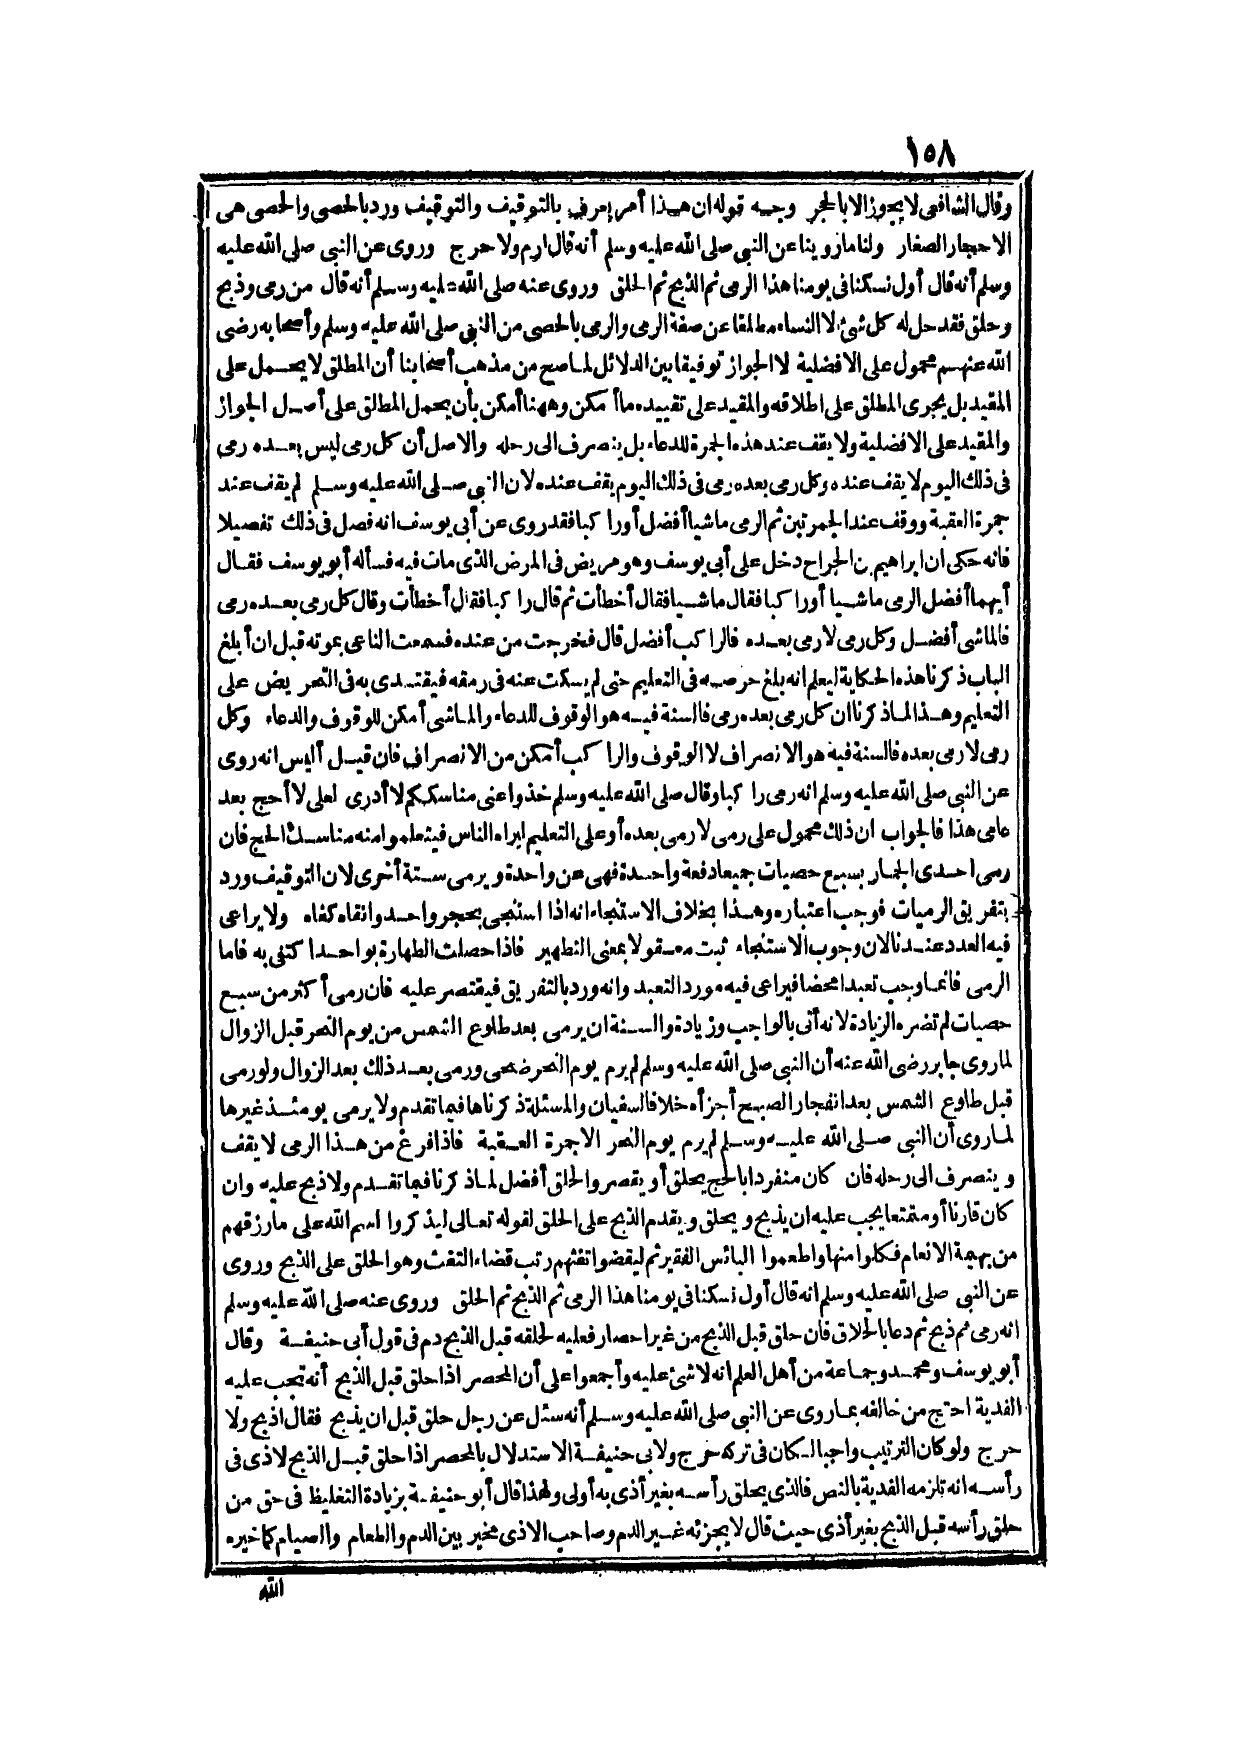 ١٥٨
وقال الشافعى لا يجوز الا بالحجر وجه قوله ان هذا أمر يعرف بالتوقيف والتوقيف ورد بالحصى والحصى هى
الاحجار الصغار ولنا ماروينا عن النبى صلى الله عليه وسلم أنه قال ارم ولا حرج وروى عن النبى صلى الله عليه
وسلم أنه قال أول نسكنا فى يومنا هذا الرمى ثم الذبح ثم الحلق وروى عنه صلى الله عليه وسلم أنه قال من رمى وذبح
وحلق فقد حل له كل شئ الا النساء مطلقا عن صفة الرمى والرمى بالحصى من النبى صلى الله عليه وسلم وأصحابه رضى
الله عنهم محمول على الافضلية لا الجواز توفيقا بين الدلائل لما صح من مذهب أصحابنا أن المطلق لا يحمل على
المقيد بل يجرى المطلق على اطلاقه والمقيد على تقييده ما أمكن وههنا أمكن بأن يحمل المطلق على أصل الجواز
والمقيد على الافضلية ولا يقف عند هذه الجمرة للدعاء بل ينصرف الى رحله والاصل أن كل رمى ليس بعده رمى
فى ذلك اليوم لا يقف عنده وكل رمى بعده رمى فى ذلك اليوم يقف عنده لان النبى صلى الله عليه وسلم لم يقف عند
جمرة العقبة ووقف عند الجمرتين ثم الرمى ماشيا أفضل أو راكبا فقد روى عن أبى يوسف انه فصل فى ذلك تفصيلا
فانه حكى ان ابراهيم بن الجراح دخل على أبى يوسف وهو مريض فى المرض الذى مات فيه فسأله أبو يوسف فقال
أيهما أفضل الرمى ماشيا أو راكبا فقال ماشيا فقال أخطأت ثم قال راكبا فقال أخطأت وقال كل رمى بعده رمى
فالماشى أفضل وكل رمى لا رمى بعده فالراكب أفضل قال فخرجت من عنده فسمعت الناعى بموته قبل ان أبلغ
الباب ذكرنا هذه الحكاية ليعلم انه بلغ حرصه فى التعليم حتى لم يسكت عنه فى رمقه فيقتدى به فى التحريض على
التعليم وهذا لماذكرنا ان كل رمى بعده رمى فالسنة فيه هو الوقوف للدعاء والماشى أمكن للوقوف والدعاء وكل
رمى لا رمى بعده فالسنة فيه هو الانصراف لا الوقوف والراكب أمكن من الانصراف فان قيل أليس انه روى
عن النبى صلى الله عليه وسلم انه رمى راكبا وقال صلى الله عليه وسلم خذوا عنى مناسككم لا أدرى لعلى لا أحج بعد
عامى هذا فالجواب ان ذلك محمول على رمى لا رمى بعده أو على التعليم ليراه الناس فيتعلموا منه مناسك الحج فان
رمى احدى الجمار بسبع حصيات جميعا دفعة واحدة فهى عن واحدة ويرمى ستة أخرى لان التوقيف ورد
بتفريق الرميات فوجب اعتباره وهذا بخلاف الاستنجاء انه اذا استنجى بحجر واحد وانقاه كفاه ولا يراعى
فيه العدد عندنا لان وجوب الاستنجاء ثبت معقولا بمعنى التطهير فاذا حصلت الطهارة بواحد اكتفى به فاما
الرمى فانما وجب تعبدا محضا فيراعى فيه مورد التعبد وانه ورد بالتفريق فيقتصر عليه فان رمى أكثر من سبع
حصيات لم تضره الزيادة لانه أتى بالواجب وزيادة والسنة ان يرمى بعد طلوع الشمس من يوم النحر قبل الزوال
لما روى جابر رضى الله عنه أن النبى صلى الله عليه وسلم لم يرم يوم النحر ضحى ورمى بعد ذلك بعد الزوال ولو رمى
قبل طلوع الشمس بعد انفجار الصبح أجزأه خلافا لسفيان والمسئلة ذكرناها فيما تقدم ولا يرمى يومئذ غيرها
لما روى أن النبى صلى الله عليه وسلم لم يرم يوم النحر الا جمرة العقبة فاذا فرغ من هذا الرمى لا يقف
وينصرف الى رحله فان كان منفردا بالحج يحلق أو يقصر والحلق أفضل لما ذكرنا فيما تقدم ولا ذبح عليه وان
كان قارنا أو متمتعا يجب عليه ان يذبح ويحلق ويقدم الذبح على الحلق لقوله تعالى ليذكروا اسم الله على مارزقهم
من بهيمة الانعام فكلوا منها واطعموا البائس الفقير ثم ليقضوا تفثهم رتب قضاء التفث وهو الحلق على الذبح وروى
عن النبى صلى الله عليه وسلم انه قال أول نسكنا فى يومنا هذا الرمى ثم الذبح ثم الحلق وروى عنه صلى الله عليه وسلم
انه رمى ثم ذبح ثم دعا بالحلاق فان حلق قبل الذبح من غير احصار فعليه لحلقه قبل الذبح دم فى قول أبى حنيفة وقال
أبو يوسف ومحمد وجماعة من أهل العلم انه لا شئ عليه وأجمعوا على أن المحصر اذا حلق قبل الذبح أنه تجب عليه
الفدية احتج من خالفه بما روى عن النبى صلى الله عليه وسلم أنه سئل عن رجل حلق قبل ان يذبح فقال اذبح ولا
حرج ولو كان الترتيب واجبا لكان فى تركه حرج ولابى حنيفة الاستدلال بالمحصر اذا حلق قبل الذبح لاذى فى
رأسه انه تلزمه الفدية بالنص فالذى يحلق رأسه بغير أذى به أولى ولهذا قال أبو حنيفة بزيادة التغليظ فى حق من
حلق رأسه قبل الذبح بغير أذى حيث قال لا يجزئه غير الدم وصاحب الاذى مخير بين الدم والطعام والصيام كما خيره
الله